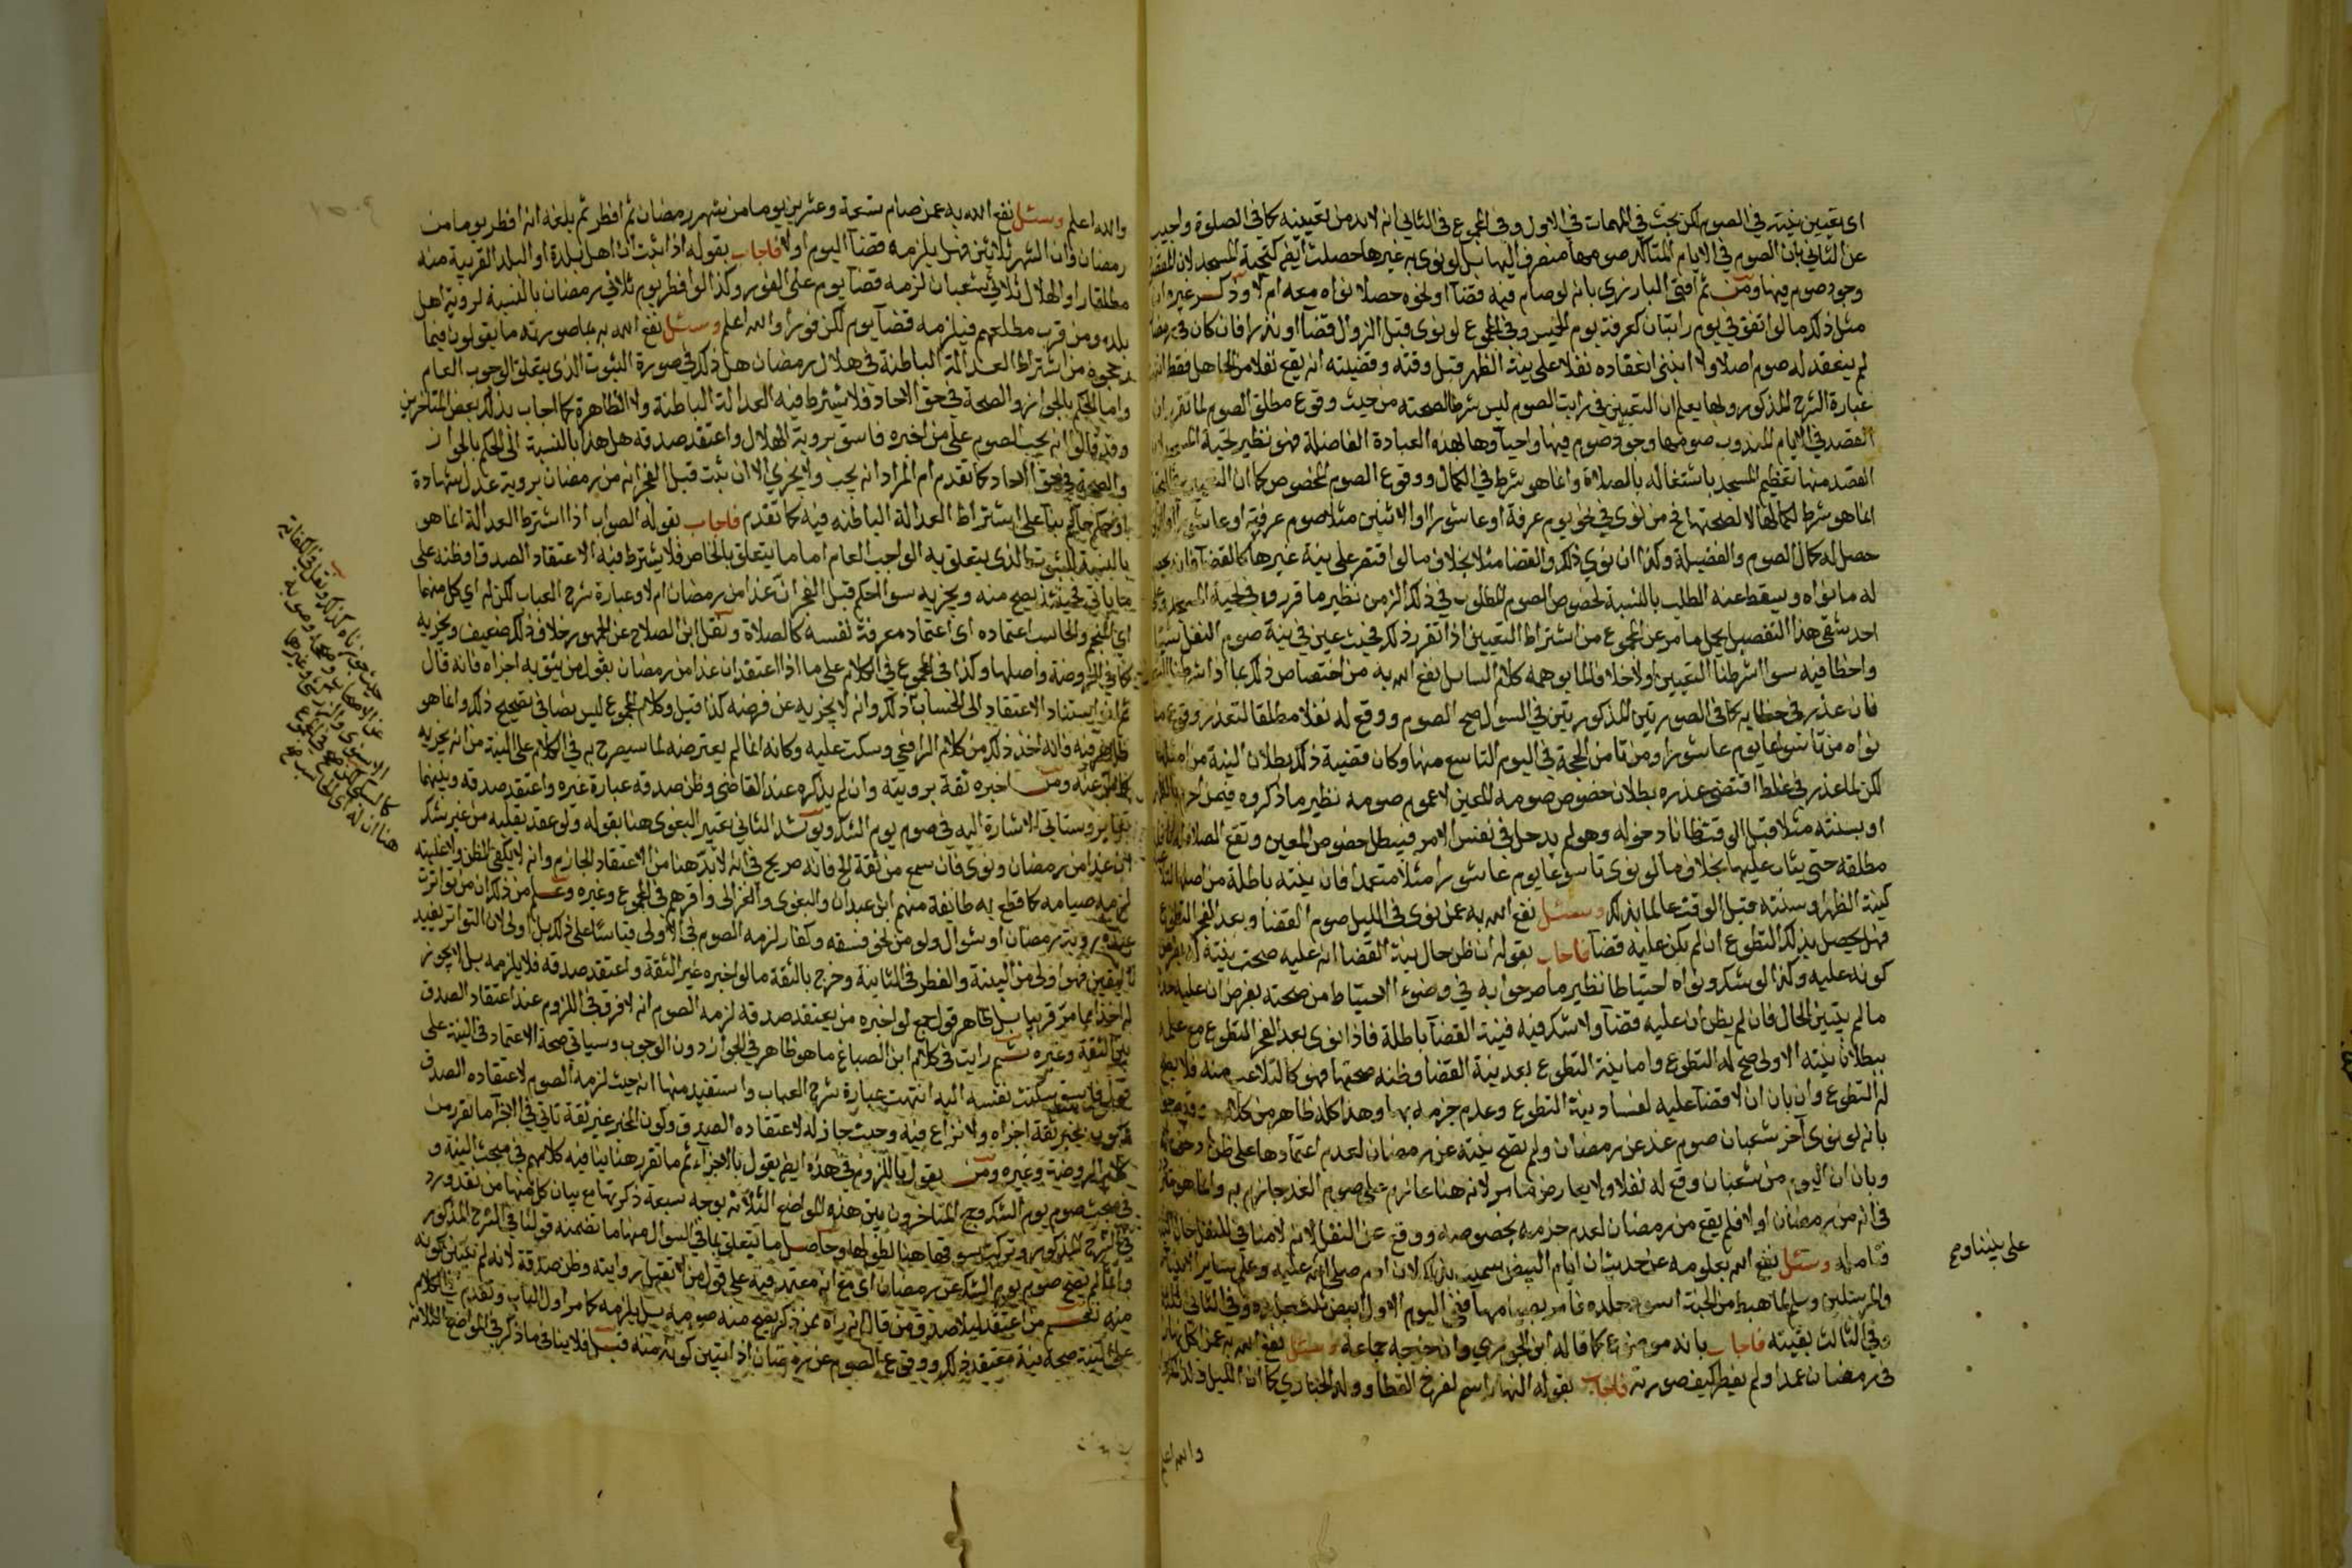 اى تعيين نيته في الصوم لكن بحث في المهمات في الاول وفي المجموع في الثاني انه لابد من تعيينه كما في الصلوة واجيب
عن الثاني بان الصوم في الايام المتاكد صومها منصرف اليها بل لو نوى به غيرها حصلت ايضا كتحية المسجد لان المقصود
وجود صوم فيها ومن ثم افتى البارزي بانه لو صام فيه قضآ او نحوه حصلا نواه معه ام لا وذكر غيره ان
مثل ذلك ما لو اتفق في يوم راتبان كعرفة يوم الخميس وفي المجموع لو نوى قبل الزوال قضآ او نذرا فان كان في رمضان
لم ينعقد له صوم اصلا والا انبنى انعقاده نفلا على نية الظهر قبل وقته وقضيته انه يقع نفلا من الجاهل فقط انتهت
عبارة الشرح المذكور وبها يعلم ان التعيين في راتب الصوم ليس شرطا لصحته من حيث وقوع مطلق الصوم لما تقرر ان
القصد في الايام المندوب صومها وجود صوم فيها واحياؤها بهذه العبادة الفاضلة فهو نظير تحية المسجد
القصد منها تعظيم المسجد باشتغاله بالصلاة وانما هو شرط في الكمال ووقوع الصوم المخصوص كما ان
انما هو شرط لكمالها لا لصحتها فمن نوى في نحو يوم عرفة او عاشورا او الاثنين مثلا صوم عرفة او عاشورا
حصل له كمال الصوم والفضيلة وكذا ان نوى ذلك والقضا مثلا بخلاف ما لو اقتصر على نية غيرها كالقضآ فانه يحصل
له ما نواه ويسقط عنه الطلب بالنسبة لخصوص الصوم المطلوب في ذلك الزمن نظير ما قرروه في تحية المسجد وعلى
احد شقي هذا التفصيل يحمل ما مر عن المجموع من اشتراط التعيين اذا تقرر ذلك فحيث عين في نية صوم النفل شيئا
واخطا فيه سوا اشرطنا التعيين اولا خلافا لما يوهمه كلام السائل نفع الله به من اختصاص ذلك بما اذا شرطنا التعيين
فان عذر في خطايه كما في الصورتين المذكورتين في السوال صح الصوم ووقع له نفلا مطلقا لتعذر وقوع ما
نواه من تاسوعا يوم عاشورا ومن ثامن الحجة في اليوم التاسع منها وكان قضية ذلك بطلان النية من اصلها
لكن لما عذر في غلطه اقتضى عذره بطلان خصوص صومه المعين لا عموم صومه نظير ما ذكروه فيمن احرم بالظهر
او بسنته مثلا قبل الوقت ظانا دخوله وهو لم يدخل في نفس الامر فيبطل خصوص المعين وتقع الصلاة
مطلقة حتى يثاب عليها بخلاف ما لو نوى تاسوعا يوم عاشورا مثلا متعمدا فان نيته باطلة من اصلها
كنية الظهر او سنته قبل الوقت عالما بذلك وسئل نفع الله به عمن نوى في الليل صوم القضا وبعد الفجر التطوع
فهل يحصل بذلك التطوع ان لم يكن عليه قضآ فاجاب بقوله ان ظن حال نية القضا انه عليه صحت نيته
كونه عليه وكذا لو شك ونواه احتياطا نظير ما صرحوا به في وضوء الاحتياط من صحته بفرض ان عليه حدثا
ما لم يتبين الحال فان لم يظن ان عليه قضآ ولا شك فيه فنية القضآ باطلة فاذا نوى بعد الفجر التطوع مع علمه
ببطلان نيته الاولى صح له التطوع واما نية التطوع بعد نية القضا وظنه صحتها فهو كالتلاعب منه فلا يصح
له التطوع وان بان ان لا قضآ عليه لفساد نية التطوع وعدم جزمه بها وهذا كله ظاهر من كلامهم
بانه لو نوى آخر شعبان صوم غد عن رمضان ولم تصح نيته عن رمضان لعدم اعتمادها على ظن
وبان ان اليوم من شعبان وقع له نفلا ولا يعارض ما مر لانه هنا عازم على صوم الغد جازم به وانما هو
في انه من رمضان اولا فلم يقع من رمضان لعدم جزمه بخصوصه ووقع عن النفل لانه لا منافي للنفل
فتامله وسئل نفع الله بعلومه عن حديث ان ايام البيض سميت بذلك لان ادم صلى الله عليه وعلى ساير الانبيآ
والمرسلين وسلم لما هبط من الجنة اسود جلده فامر بصيامها ففي اليوم الاول ابيض ثلث جلده وفي الثاني ثلثا
وفي الثالث بقيته فاجاب بانه موضوع كما قاله ابن الجوزي وان خرجه جماعة وسئل نفع الله به عمن اكل نهار
في رمضان عمدا ولم يفطر كيف صورته فاجاب بقوله النهار اسم لفرخ القطا وولد الحباري كما ان الليل ولد
والله اعلم
على نبينا و
والله اعلم وسئل نفع الله به عمن صام تسعة وعشرين يوما من شهر رمضان ثم افطر ثم بلغه انه افطر يوما من
رمضان وان الشهر ثلاثين فهل يلزمه قضآ اليوم اولا فاجاب بقوله اذا ثبت ان اهل بلدة او البلد القريبة منه
مطلقا راوا الهلال ثلاثي شعبان لزمه قضآ يوم على الفور وكذا لو افطر يوم ثلاثي رمضان بالنسبة لروية اهل
بلده ومن قرب مطلعهم فيلزمه قضآ يوم لكن فورا والله اعلم وسئل نفع الله به بما صورته ما يقولون فيما
رجحوه من اشتراط العدالة الباطنة في هلال رمضان هل ذلك في صورة الثبوت الذي يتعلق الوجوب العام
واما الحكم بالجواز والصحة في حق الاحاد فلا يشترط فيه العدالة الباطنة ولا الظاهرة كما اجاب بذلك بعض المتاخرين
وقد قالوا انه يجب الصوم على من اخبره فاسق بروية الهلال واعتقد صدقه هل هذا بالنسبة الى الحكم بالجواز
والصحة في حق الاحاد كما تقدم ام المراد انه يجب ولا يجزي الا ان ثبت قبل الفجر انه من رمضان بروية عدل بشهادة
او بحكم حاكم بنآ على اشتراط العدالة الباطنه فيه كما تقدم فاجاب بقوله الصواب اذا اشترط العدالة انما هو
بالنسبة للثبوت الذي يتعلق به الواجب العام اما ما يتعلق بالخاص فلا يشترط فيه الا اعتقاد الصدق او ظنه على
ما ياتي فحينئذ يصح منه ويجزيه سوا الحكم قبل الفجر ان غدا من رمضان ام لا وعبارة شرح العباب لكن له اي كل منهما
اي المنجم والحاسب اعتماده اى اعتماد معرفة نفسه كالصلاة ونقل ابن الصلاح عن الجمهور خلاف ذلك ضعيف ويجزيه
كما في الروضة واصلها وكذا في المجموع في الكلام على ما اذا اعتقد ان غدا من رمضان بقول من يثق به اجزاه فانه قال
استناد الاعتقاد الى الحساب ذلك وانه لا يجزيه عن فرضه كذا قيل وكلام المجموع ليس نصا في تصحيح ذلك وانما هو
ظاهر فيه فانه اخذ ذلك من كلام الرافعي وسكت عليه وكانه انما لم يعترضه لما سيصرح به في الكلام على النية من انه يجزيه
كما مر عنه ومن اخبره ثقة برويته وان لم يذكره عند القاضي وظن صدقه عبارة غيره واعتقد صدقه وبينهما
تغاير وستاتي الاشارة اليه في صوم يوم الشك ويؤيد الثاني تعبير البغوى هنا بقوله ولو عقد بقلبه من غير شك
ان غدا من رمضان ونوى فان سمع من ثقة الخ فانه صريح في انه لابد هنا من الاعتقاد الجازم وانه لا يكفي الظن ولا غلبته
لزمه صيامه كما قطع به طائفة منهم ابن عبدان والبغوى والغزالى واقرهم في المجموع وغيره وعلم من ذلك ان من تواترت
عنده روية رمضان او شوال ولو من نحو فسقه وكفار لزمه الصوم في الاولى قياسا على ذلك بل اولى لان التواتر يفيد
اليقين فهو اولى من البينة والفطر في الثانية وخرج بالثقة ما لو اخبره غير الثقة واعتقد صدقه فلا يلزمه بل لا يجوز
له اخذا مما مر قريبا بل ظاهر قول جمع لو اخبره من يعتقد صدقه لزمه الصوم انه لا فرق في اللزوم عند اعتقاد الصدق
بين الثقة وغيره ثم رايت في كلام ابن الصباغ ما هو ظاهر في الجواز دون الوجوب وسياتي صحة الاعتماد في النية على
قول فاسق سكنت نفسه اليه انتهت عبارة شرح العباب واستفيد منها انه حيث لزمه الصوم لاعتقاده الصدق
بخبر ثقة اجزاه ولا نزاع فيه وحيث جاز له لاعتقاده الصدق وكون المخبر غير ثقة تاتي في الاجزآ ما تقرر من
كلام الروضة وغيره ومن يقول باللزوم في هذه ايضا يقول بالاجزآء ثم ما تقرر هنا ينافيه كلامهم في مبحث النية و
في مبحث صوم يوم الشك وجمع المتاخرون بين هذه المواضع الثلاثة بوجه سبعة ذكرتها مع بيان كل منها من نقد ورد
في الشرح المذكور وتركت سوقها هنا لطولها وحاصل ما يتعلق بما في السوال منها ما تضمنه قولنا في الشرح المذكور
وانما لم يصح صوم يوم الشك عن رمضان اى مع انه معتمد فيه على قول من لا تقبل روايته وظن صدقه لانه لم يتبين كونه
منه نعم من اعتقد ليلا صدق من قال انه راه ممن ذكر يصح منه صومه بل يلزمه كما مر اول الباب وتقدم في الكلام
على النية صحة نية معتقد ذلك ووقوع الصوم عن رمضان اذا تبين كونه منه قيل فلا ينافي ما ذكر في المواضع الثلاثة